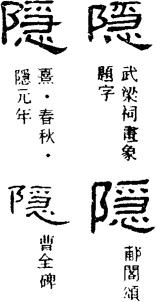 隐
武梁祠畫象
題字
隐
郙閣頌
隐
熹・春秋・
隱元年
隐
曹全碑